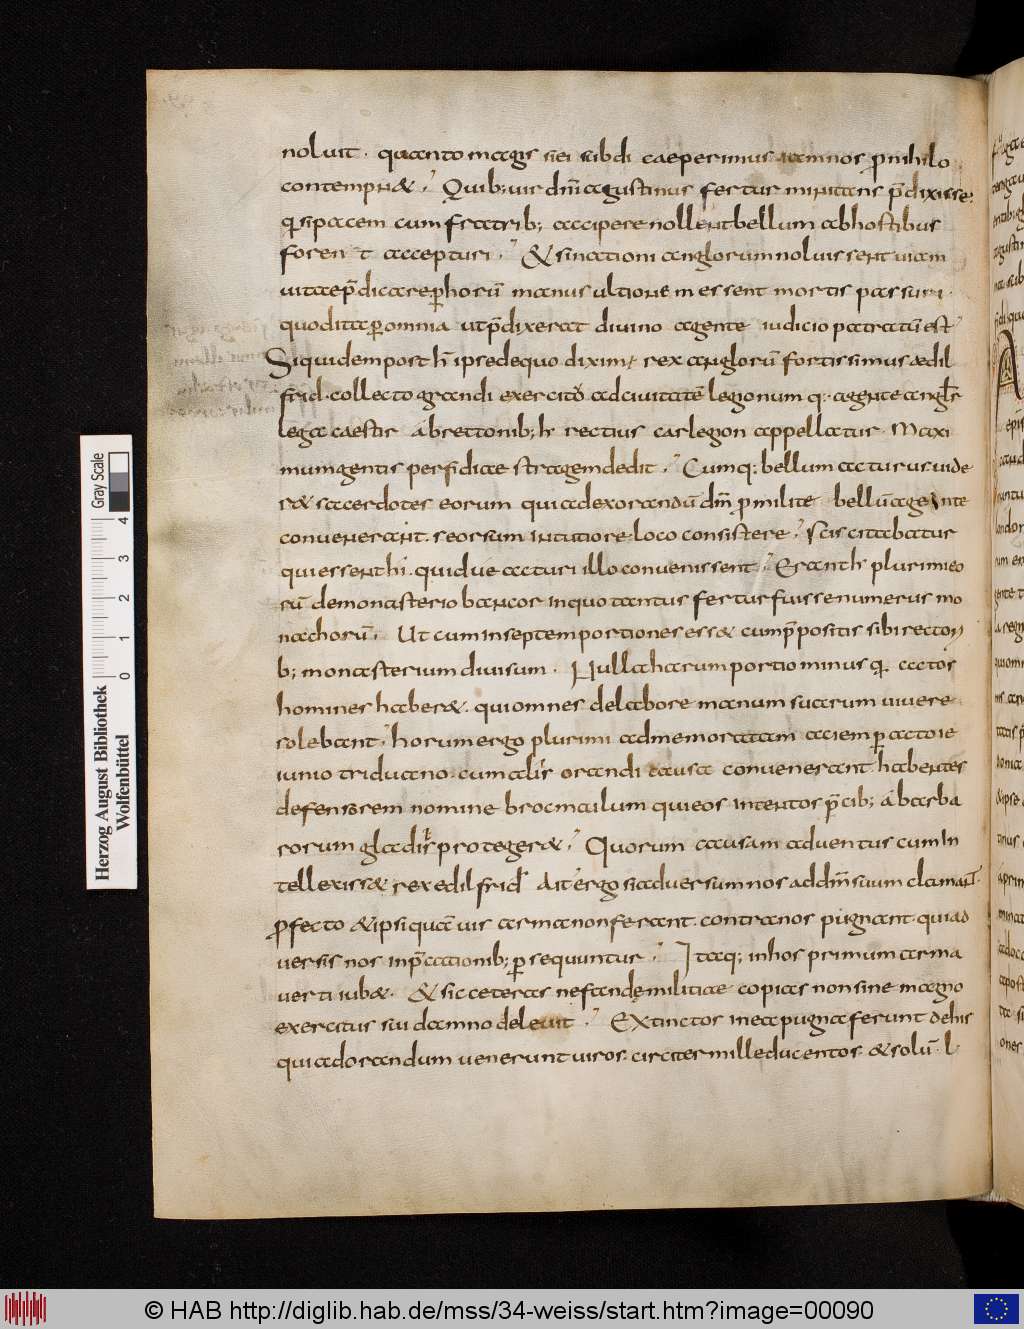 noluit. quanto magis siei subdi caeperimus iamnos ꝓnihilo
contempn&. Quib; uir dñi agustinus fertur minitans p̃dixisse.
qđ sipacem cum fratrib; accipere nollent bellum abhostibus
forent accepturi. & sinationi anglorum noluissent uiam
uitae p̃dicare ꝑhorũ manus ultionem essent mortis passuri.
quodita ꝑomnia ut p̃dixerat diuino agente iudicio patratũ est
Siquidem post h̄ ipse dequo diximꝰ rex anglorũ fortissimus aedil
frid. collecto grandi exercitu adciuitatẽ legionum q;. agente angloꝝ
lega caestir a brettonib; h̄ rectius carlegion appellatur. Maxi
mum gentis perfidiae stragem dedit. Cumq; bellum acturus uide
r& sacerdotes eorum quiadexorandũ dm̃ ꝓmilite bellũ agente
conuenerant. seorsum intutiore loco consistere. Scis citabatur
quiessent hi. quidue acturi illo conuenissent. Erant h̄ plurimi eo
rũ demonasterio bancor inquo tantus fertur fuisse numerus mo
nachorũ. Ut cum inseptem portiones ess& cum p̃positis sibi rectori
b; monasterium diuisum. Nulla harum portio minus qđ. ccctos
homines haber&. quiomnes delabore manum suarum uiuere
solebant. horum ergo plurimi admemoratam aciem ꝑacto ie
iunio triduano. cum aliis orandi causa conuenerant. habentes
defensorem nomine brocmailum quieos intentos p̃cib; a barba
rorum gladiis proteger&. Quorum causam aduentus cum In
tellexiss& rex edilfrid. Ait ergo siaduersum nos addm̃ suum clamant.
ꝓfecto & ipsi quãuis arma nonferant. contra nos pugnant. quiad
uersis nos inp̃cationib; ꝑsequuntur. Itaq; inhos primum arma
uerti iub&. & sic ceteras nefandę militiae copias non sine magno
exercitus sui damno deleuit. Extinctos inea pugna ferunt dehis
quiadorandum uenerunt uiros. circiter mille ducentos. & solũ. l.
Herzog August Bibliothek
Wolfenbüttel
Gray Scale
0 1 2 3 4
© HAB http://diglib.hab.de/mss/34-weiss/start.htm?image=00090